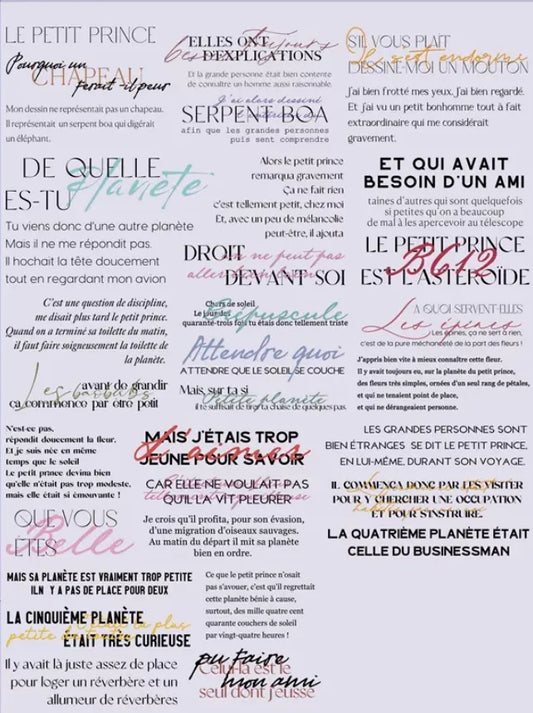 LE PETIT PRINCE
Pourquoi un
CHAPEAU
ferait-il peur
Mon dessin ne représentait pas un chapeau.
Il représentait un serpent boa qui digérait
un éléphant.
ELLES ONT toujours
besoin D'EXPLICATIONS
Et la grande personne était bien contente
de connaître un homme aussi raisonnable
J'ai alors dessiné
SERPENT BOA
afin que les grandes personnes
puis sent comprendre
S'IL VOUS PLAIT
Il s'est endormi
DESSINE-MOI UN MOUTON
j'ai bien frotté mes yeux. J'ai bien regardé.
Et j'ai vu un petit bonhomme tout à fait
extraordinaire qui me considérait
gravement.
DE QUELLE
Planète
ES-TU
Tu viens donc d'une autre planète
Mais il ne me répondit pas.
Il hochait la tête doucement
tout en regardant mon avion
Alors le petit prince
remarqua gravement
Ça ne fait rien
c'est tellement petit, chez moi
Et, avec un peu de mélancolie
peut-être, il ajouta
ET QUI AVAIT
BESOIN D'UN AMI
taines d'autres qui sont quelquefois
si petites qu'on a beaucoup
de mal à les apercevoir au télescope
DROIT
on ne peut pas
aller bien loin
DEVANT SOI
LE PETIT PRINCE
B612
EST L'ASTEROÏDE
C'est une question de discipline,
me disait plus tard le petit prince.
Quand on a terminé sa toilette du matin,
il faut faire soigneusement la toilette de
la planète.
Chers de soleil
Crépuscule
Le jour des
quarante-trois fois tu étais donc tellement triste
A QUOI SERVENT-ELLES
Les épines
Les épines, ça ne sert à rien,
c'est de la pure méchanceté de la part des fleurs !
Les baobabs
avant de grandir
ça commence par être petit
Attendre quoi
ATTENDRE QUE LE SOLEIL SE COUCHE
Mais, sur ta si
Petite planète
il te suffisait de tirer ta chaise de quelques pas
J'appris bien vite à mieux connaître cette fleur.
Il y avait toujours eu, sur la planète du petit prince,
des fleurs très simples, ornées d'un seul rang de pétales,
et qui ne tenaient point de place,
et qui ne dérangeaient personne.
N'est-ce pas,
répondit doucement la fleur.
Et je suis née en même
temps que le soleil
Le petit prince devina bien
qu'elle n'était pas trop modeste,
mais elle était si émouvante !
MAIS J'ÉTAIS TROP
l'aimer
JEUNE POUR SAVOIR
CAR ELLE NE VOULAIT PAS
QU'IL LA VÎT PLEURER
Je crois qu'il profita, pour son évasion,
d'une migration d'oiseaux sauvages.
Au matin du départ il mit sa planète
bien en ordre.
LES GRANDES PERSONNES SONT
BIEN ÉTRANGES SE DIT LE PETIT PRINCE,
EN LUI-MÊME, DURANT SON VOYAGE.
IL COMMENÇA DONC PAR LES VISITER
POUR Y CHERCHER UNE OCCUPATION
ET POUR S'INSTRUIRE.
LA QUATRIÈME PLANÈTE ÉTAIT
CELLE DU BUSINESSMAN
QUE VOUS
Belle
ÊTES
MAIS SA PLANÈTE EST VRAIMENT TROP PETITE
ILN Y A PAS DE PLACE POUR DEUX
Ce que le petit prince n'osait
pas s'avouer, c'est qu'il regrettait
cette planète bénie à cause,
surtout, des mille quatre cent
quarante couchers de soleil
par vingt-quatre heures !
LA CINQUIÈME PLANÈTE
c'était la plus
petite de toutes
ÉTAIT TRÈS CURIEUSE
Il y avait là juste assez de place
pour loger un réverbère et un
allumeur de réverbères
pu faire
Celui-là est le
mon ami
seul dont j'eusse